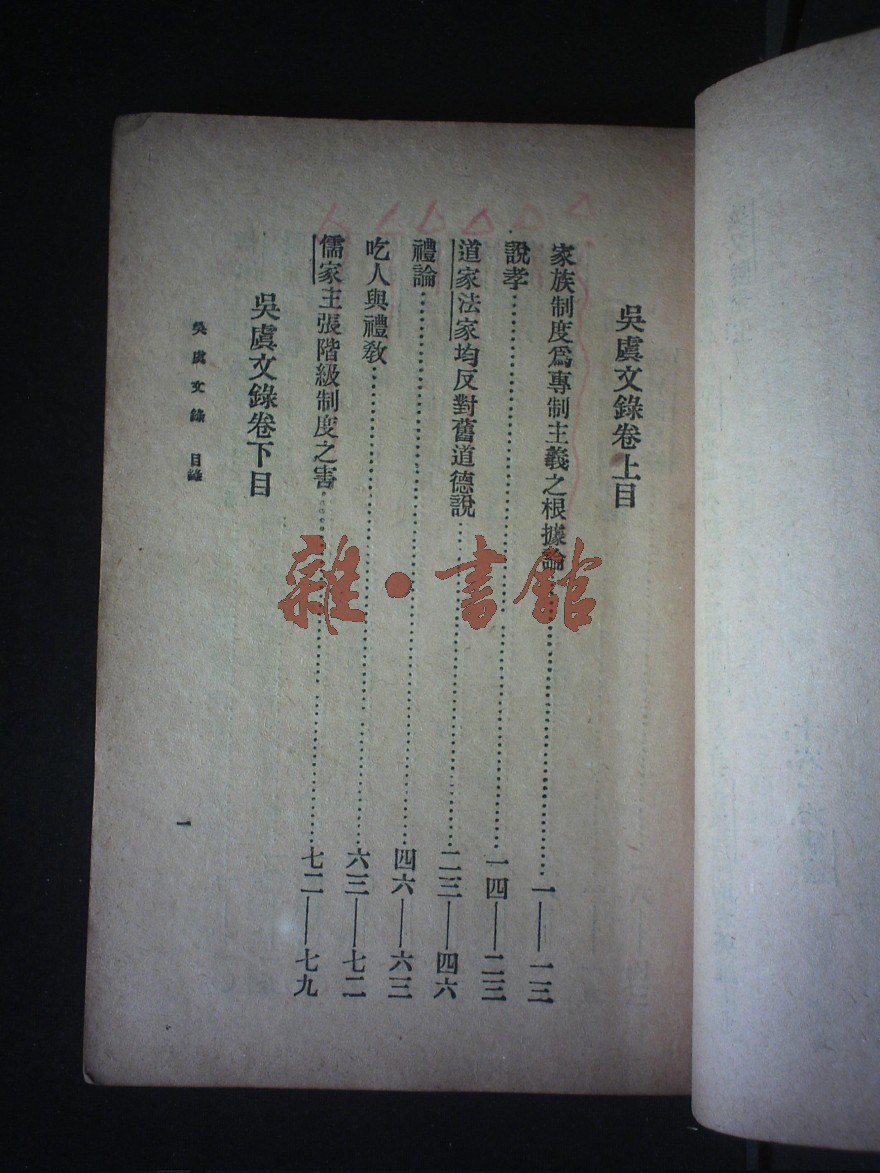 吳虞文錄卷上目
家族制度爲專制主義之根據論……一——一三
說孝……一四——二三
道家法家均反對舊道德說……二三——四六
禮論……四六——六三
吃人與禮教……六三——七二
儒家主張階級制度之害……七二——七九
吳虞文錄卷下目
吳虞文錄 目錄
一
雜·書館